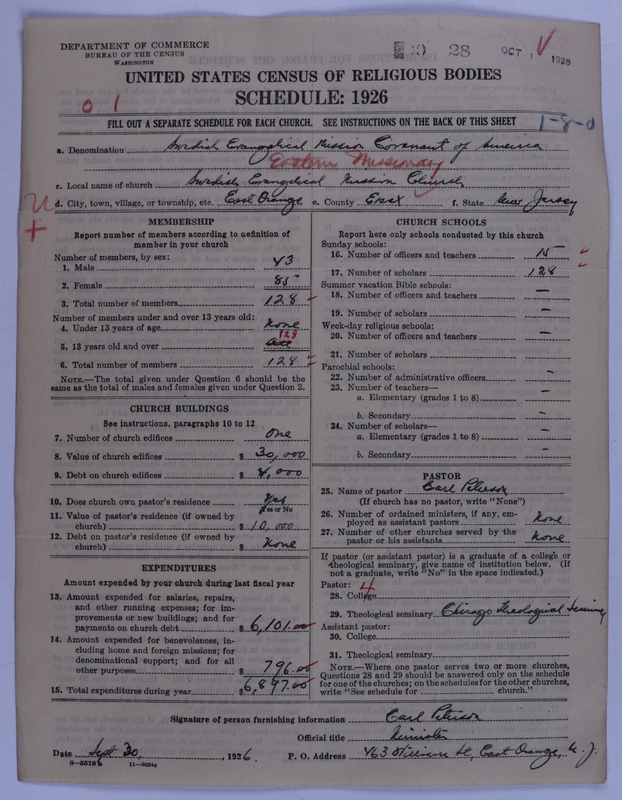 DEPARTMENT OF COMMERCE
BUREAU OF THE CENSUS
WASHINGTON
28 OCT 1 1926
UNITED STATES CENSUS OF RELIGIOUS BODIES
SCHEDULE: 1926
0 1
FILL OUT A SEPARATE SCHEDULE FOR EACH CHURCH. SEE INSTRUCTIONS ON THE BACK OF THIS SHEET
1-8-0
a. Denomination Swedish Evangelical Mission Covenant of America
Eastern Missionary
c. Local name of church Swedish Evangelical Mission Church
d. City, town, village, or township, etc. East Orange e. County Essex f. State New Jersey
MEMBERSHIP
Report number of members according to definition of
member in your church
Number of members, by sex:
1. Male 43
2. Female 85
3. Total number of members 128
Number of members under and over 13 years old:
4. Under 13 years of age none
128
5. 13 years old and over all
6. Total number of members 128
NOTE.—The total given under Question 6 should be the
same as the total of males and females given under Question 3.
CHURCH BUILDINGS
See instructions, paragraphs 10 to 12
7. Number of church edifices one
8. Value of church edifices $ 30,000
9. Debt on church edifices $ 4,000
10. Does church own pastor's residence Yes
Yes or No
11. Value of pastor's residence (if owned by
church) $ 10,000
12. Debt on pastor's residence (if owned by
church) $ None
EXPENDITURES
Amount expended by your church during last fiscal year
13. Amount expended for salaries, repairs,
and other running expenses; for im-
provements or new buildings; and for
payments on church debt $ 6,101.00
14. Amount expended for benevolences, in-
cluding home and foreign missions; for
denominational support; and for all
other purposes $ 796.00
15. Total expenditures during year $ 6,897.00
CHURCH SCHOOLS
Report here only schools conducted by this church
Sunday schools:
16. Number of officers and teachers 15
17. Number of scholars 128
Summer vacation Bible schools:
18. Number of officers and teachers —
19. Number of scholars —
Week-day religious schools:
20. Number of officers and teachers —
21. Number of scholars
Parochial schools:
22. Number of administrative officers —
23. Number of teachers—
a. Elementary (grades 1 to 8) —
b. Secondary —
24. Number of scholars—
a. Elementary (grades 1 to 8) —
b. Secondary —
PASTOR
25. Name of pastor Earl Peterson
(If church has no pastor, write "None")
26. Number of ordained ministers, if any, em-
ployed as assistant pastors None
27. Number of other churches served by the
pastor or his assistants None
If pastor (or assistant pastor) is a graduate of a college or
theological seminary, give name of institution below. (If
not a graduate, write "No" in the space indicated.)
Pastor: 4
28. College
29. Theological seminary Chicago Theological Seminary
Assistant pastor:
30. College
31. Theological seminary
NOTE.—Where one pastor serves two or more churches,
Questions 28 and 29 should be answered only on the schedule
for one of the churches; on the schedules for the other churches,
write "See schedule for church."
Signature of person furnishing information Earl Peterson
Official title Minister
Date Sept 30, 1926. P. O. Address 463 William St, East Orange, N. J.
8-5519a 11-9024c